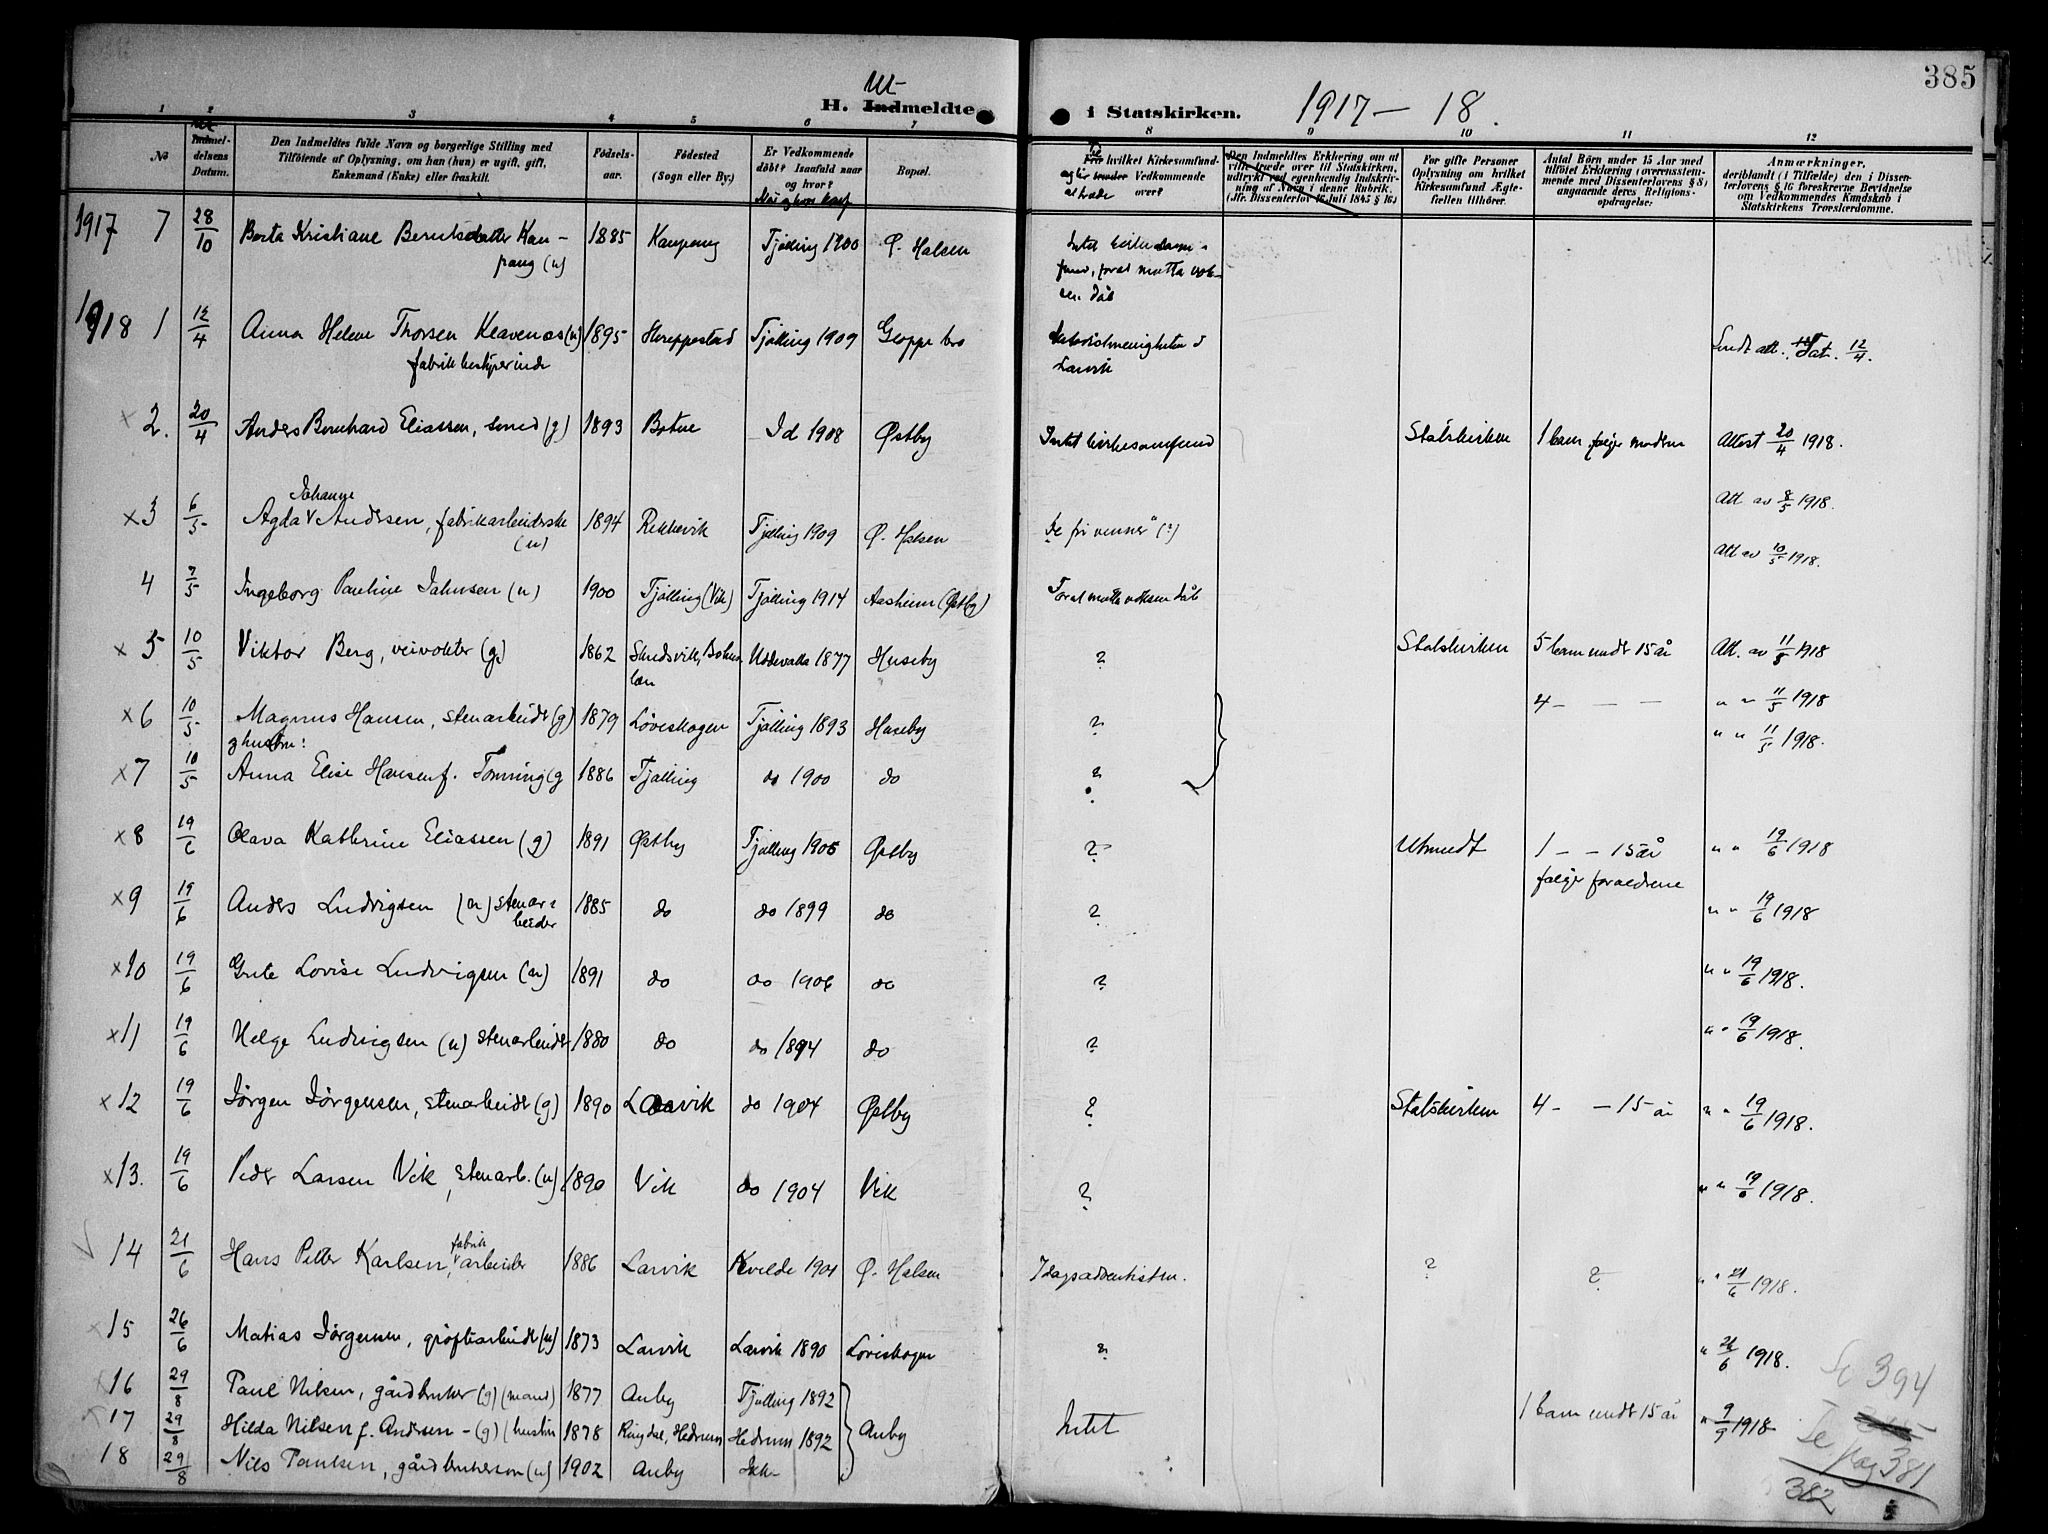 385
Ut-
H. Indmeldte i Statskirken. 1917 - 18.
1 2 3 4 5 6 7 8 9 10 11 12
No
Ut
Indmeldelsens Datum.
Den Indmeldtes fulde Navn og borgerlige Stilling med Tilföiende af Oplysning, om han (hun) er ugift, gift, Enkemand (Enke) eller fraskilt.
Födselsaar.
Födested (Sogn eller By.)
Er Vedkommende döbt? Isaafald naar og hvor?
Bopæl.
hvilket Kirkesamfund Vedkommende
Den Indmeldtes Erklæring om at ville træde over til Statskirken, udtrykt ved egenhændig Indskrivning af Navn i denne Rubrik. (Jfr. Dissenterlov 16 Juli 1845 § 16.)
For gifte Personer Oplysning om hvilket Kirkesamfund Ægtefællen tilhörer.
Antal Börn under 15 Aar med tilföiet Erklæring (overensstemmende med Dissenterlovens § 8) angaaende deres Religionsopdragelse:
Anmærkninger, deriblandt (i Tilfælde) den i Dissenterlovens § 16 foreskrevne Bevidnelse om Vedkommendes Kundskab i Statskirkens Troeslærdomme.
1917 7 28/10 Berta Kristiane Berntsdatter Kaupang (u) 1885 Kaupang Tjølling 1900 Ø. Halsen Intet kirkesamfund, foral motta voksen dåb
1918 1 12/4 Anna Helene Thorsen Klavenæs (u) fabrikbestyrerinde 1895 Tjølling 1909 Gloppe bro Larvik Sendt att. 12/4.
x 2. 20/4 Anders Bernhard Eliassen, smed (g) 1893 Botne Id 1908 Østby Intet kirkesamfund Statskirken 1 barn følger moderen Attest 20/4 1918.
x 3 6/5 Agda Johanne Andersen, fabrikarbeiderske (u) 1894 Rekkevik Tjølling 1909 Ø. Halsen De fri venner" (?) Att. av 8/5 1918.
4 7/5 Ingeborg Pauline Johnsen (u) 1900 Tjølling (Vik) Tjølling 1914 Aasheim (Østby) Foral motta voksen dåb Att av 10/5 1918.
x 5 10/5 Viktor Berg, veivokter (g) 1862 Skredsvik, Bohus län Uddevalla 1877 Huseby ? Statskirken 5 barn undr 15 år Att. av 11/5 1918
x 6 10/5 Magnus Hansen, stenarbeider (g) 1879 Løveskogen Tjølling 1893 Huseby ? 4 - - - " " 11/5 1918
og hustru:
x 7 10/5 Anna Elise Hansen f. Tomning (g 1886 Tjølling do 1900 do ? " " 11/5 1918.
x 8 19/6 Olava Kathrine Eliassen (g) 1891 Østby Tjølling 1905 Østby ? Utmeldt 1 - - 15 år følger foraeldrene " " 19/6 1918
x 9 19/6 Anders Ludvigsen (u) stenarbeider 1885 do do 1899 do ? " " 19/6 1918
x 10 19/6 Grete Lovise Ludvigsen (u) 1891 do do 1906 do ? " " 19/6 1918.
x 11 19/6 Helge Ludvigsen (u) stenarbeider 1880 do do 1894 do ? " " 19/6 1918.
x 12 19/6 Jørgen Jørgensen, stenarbeider (g) 1890 Larvik do 1904 Østby ? Statskirken 4 - - 15 år " " 19/6 1918.
x 13. 19/6 Peder Larsen Vik, stenarb. (u) 1890 Vik do 1904 Vik ? " " 19/6 1918.
V 14 21/6 Hans Petter Karlsen, fabrikarbeider 1886 Larvik Kvelde 1901 Ø. Halsen 7dagsadventisten. ? ? " " 21/6 1918.
x 15 26/6 Matias Jørgensen, grøftearbeider (u) 1873 Larvik Larvik 1890 Løveskogen ? " 26/6 1918.
x 16 29/8 Paul Nilsen, gårdbruker (g) (mand) 1877 Auby Tjølling 1892
x 17 29/8 Hilda Nilsen f. Andersen - (g) (hustru 1878 Ringdal, Hedrum Hedrum 1892 Auby Intet 1 barn undr 15 år " 9/9 1918
18 29/8 Nils Paulsen, gårdbrukersøn (u) 1902 Auby Ikke
Se 394
Se pag 381
382